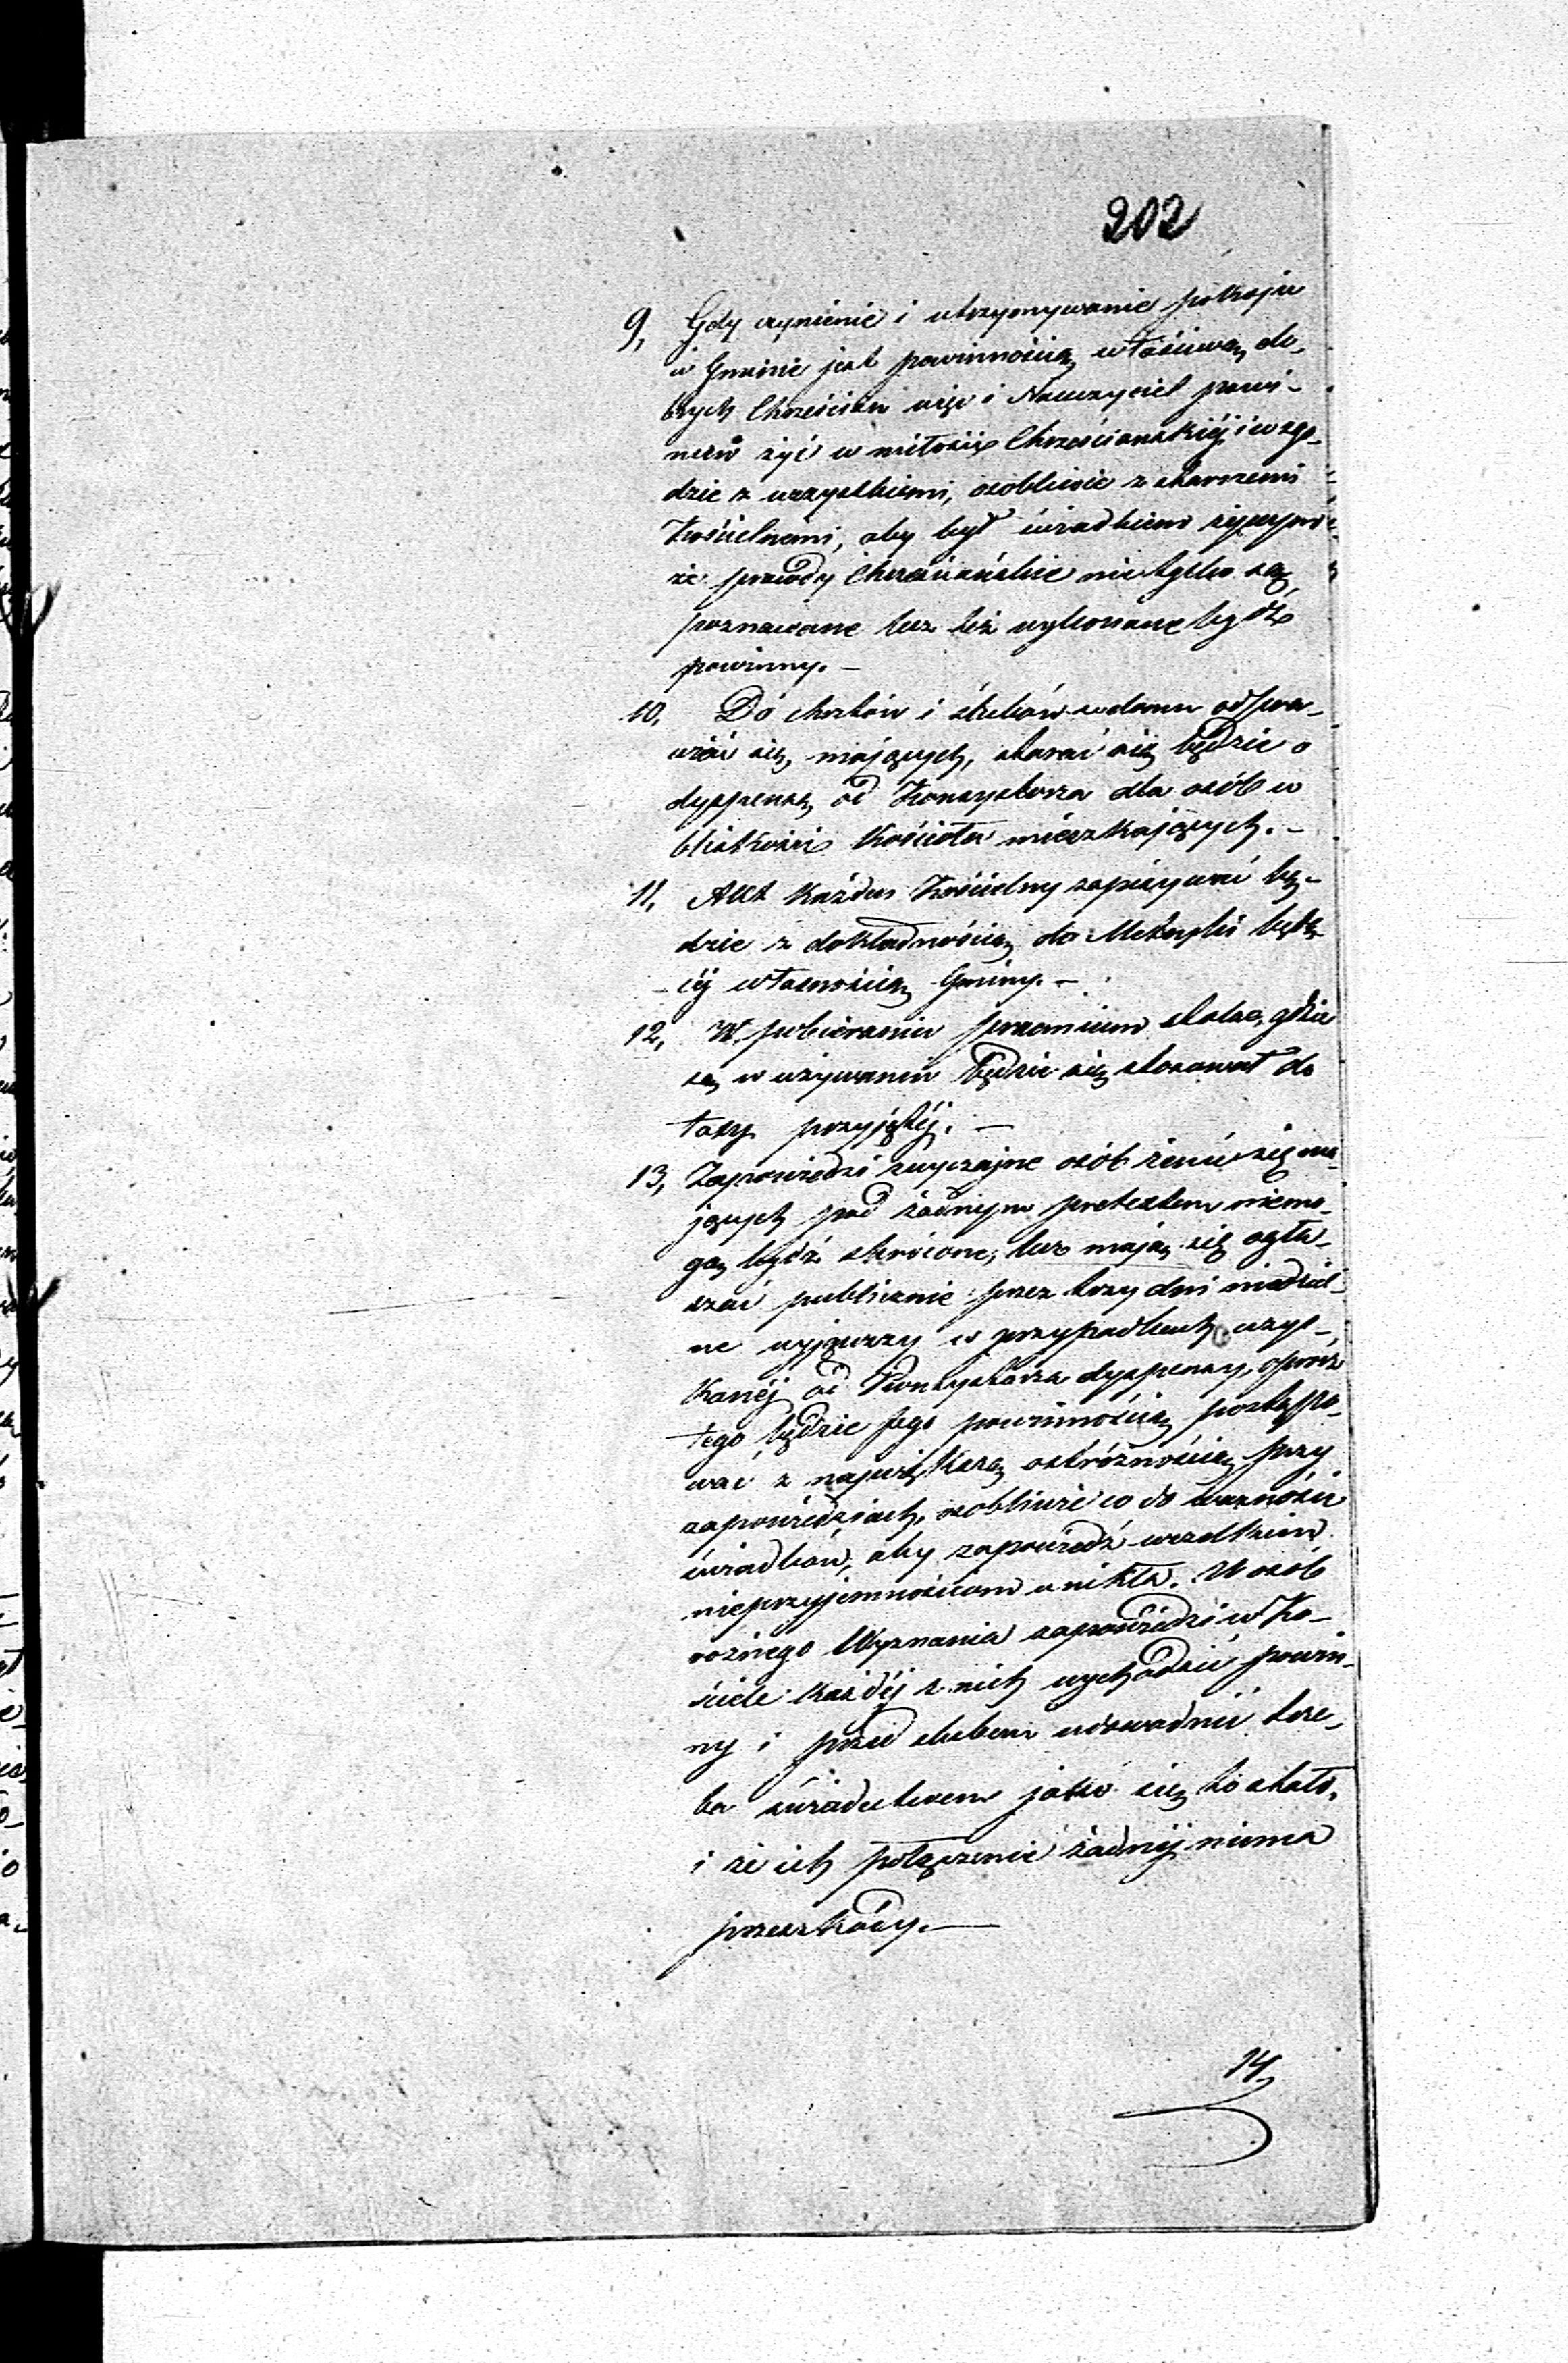 202
9, Gdy czynienie i utrzymywanie pokoju
w Gminie jest powinnością właściwą do-
brych Chrześcian więc i Nauczyciel powi-
nien żyć w miłości Chrześcianskiéj i w zgo-
dzie z wszystkiemi, osobliwie z starszemi
Kościelnemi, aby był świadkiem żywym
że prawdy Chrześciańskie nie tylko są
poznawane lecz też wykonane bydź
powinny. –
10, Do chrztów i ślubów w domu odpra-
wiać się mających, starać się będzie o
dyspensę od Konsystorza dla osób w
bliskości Kościoła mieszkających. –
11, Akt każden Kościelny zapisywać bę-
dzie z dokładnością do Metryki będą-
céj własnością Gminy. –
12, W pobieraniu stolae, gdzie
są w używaniu będzie się stosował do
taxy przyjętéj. –
13, Zapowiedzi zwyczajne osób żenić się ma-
jących pod żadnym pretextem niemo-
gą bydź skrócone, lecz mają się ogła-
szać publicznie przez trzy dni niedziel-
ne wyjąwszy w przypadkach uzys-
kanéj od Konsystorza dyspensy, oprócz
tego będzie jego powinnością postępo-
wać z największą ostróżnością przy
zapowiedziach, osobliwie co do ważności
świadków, aby zapowiedź wszelkim
nieprzyjemnościom unikła. U osób
rożnego Wyznania zapowiedzi w Ko-
ściele każdéj z nich wychodzić powin-
ny i przed ślubem udowodnić trze-
ba świadectwem jako się to stało,
i że ich połączenie żadnéj niema
przeszkody. –
14,